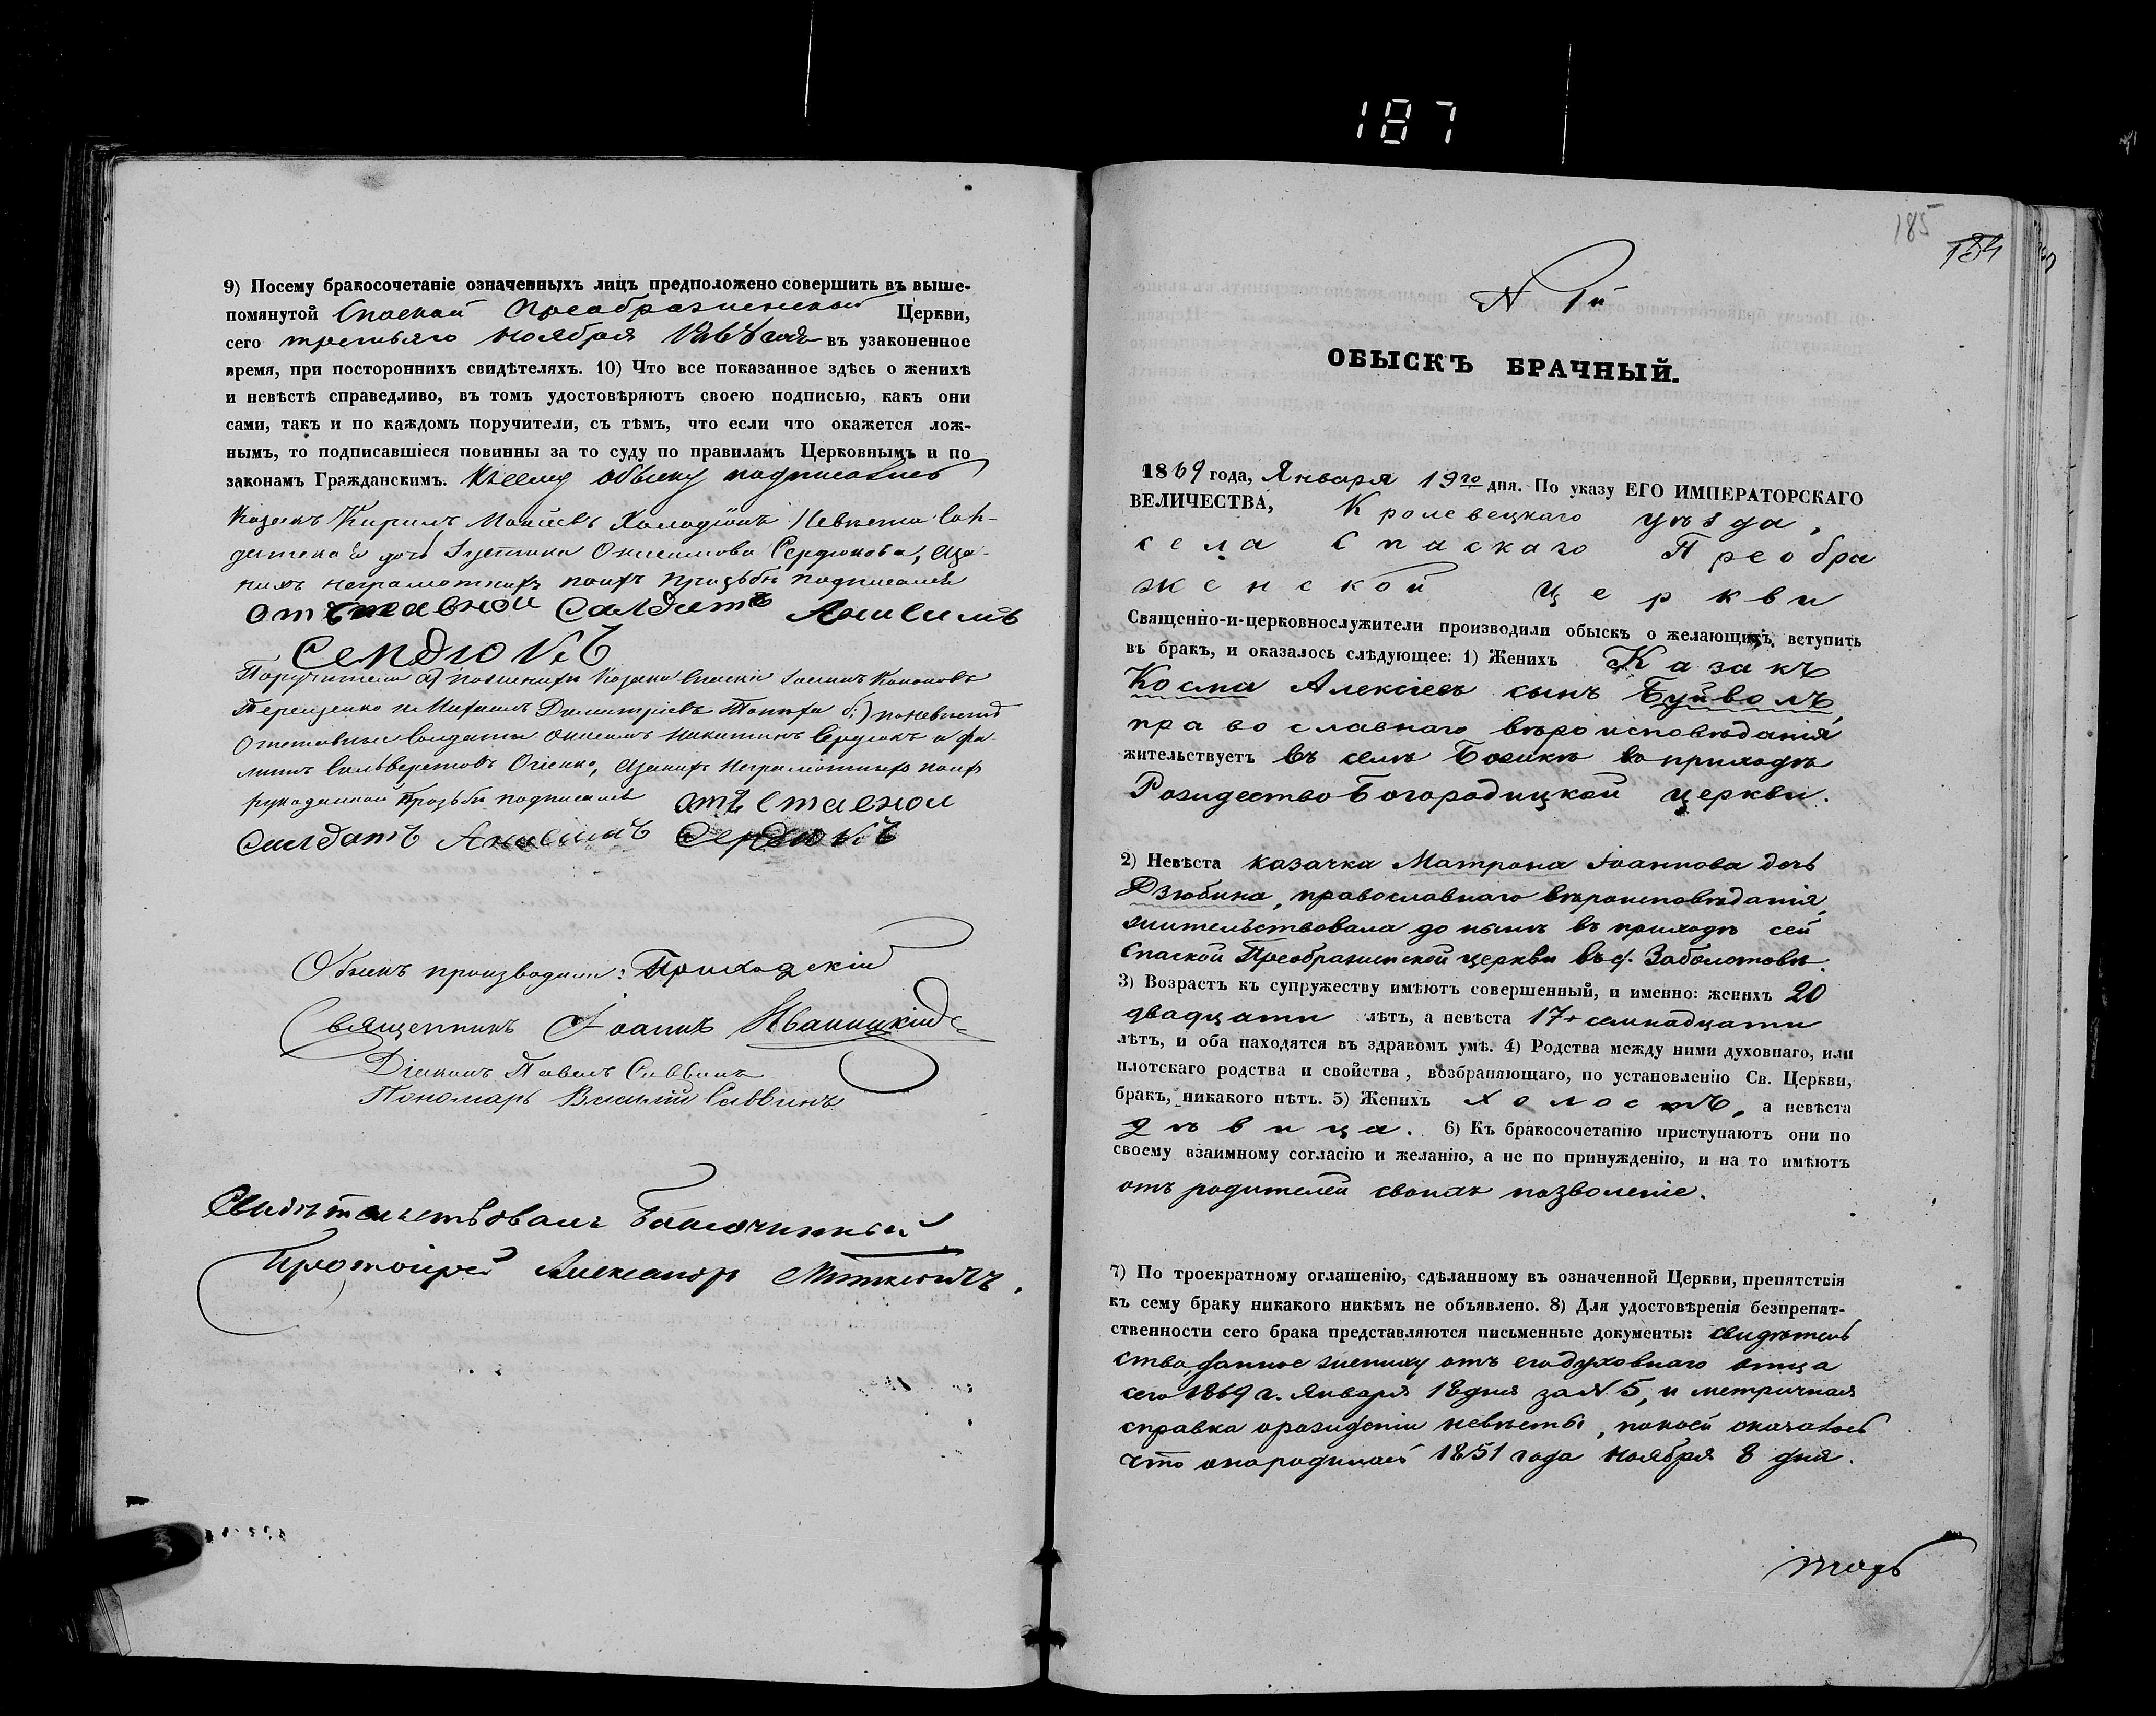 187
9) Посему бракосочетаніе означенныхъ лицъ предположено совершить въ выше-
помянутой Спаской Преображенской Церкви,
сего третьяго ноября 1868 года въ узаконенное
время, при постороннихъ свидѣтеляхъ. 10) Что все показанное здѣсь о женихѣ
и невѣстѣ справедливо, въ томъ удостовѣряютъ своею подписью, какъ они
сами, такъ и по каждомъ поручители, съ тѣмъ, что если что окажется лож-
нымъ, то подписавшіеся повинны за то суду по правиламъ Церковнымъ и по
законамъ Гражданскимъ. Къ сему обыску подписались
Козакъ Кирилъ Невѣста Сол-
датска дочь Онисимова Сердюкова, а за
нихъ неграмотныхъ поихъ прозьбѣ подписался
отъставной Салдатъ Анисимъ
Сердюкъ
Поручители а) по женихѣ Козаки Спаскіе
Терещенко и Михаилъ Димитріевъ б) по невѣстѣ
Отставные Солдаты Онисимъ Никитинъ Сердюкъ и Фи-
липъ Огіенко, а за нихъ неграмотныхъ поихъ
рукоданной прозьбѣ подписался отъставной
Салдатъ Анисимъ Сердюкъ
Обыскъ производили: Приходскій
Священникъ Іоаннъ Иваницкій
Діаконъ Павелъ Саввинъ
Пономарь Василій Саввинъ
Свидѣтельствовалъ Благочинный
Протоіерей Александръ
185
184
N 1й
ОБЫСКЪ БРАЧНЫЙ.
1869 года, Января 19го дня. По указу ЕГО ИМПЕРАТОРСКАГО
ВЕЛИЧЕСТВА, Кролевецкаго уѣзда,
села Спаскаго Преобра
женской церкви
Священно-и-церковнослужители производили обыскъ о желающихъ вступить
въ бракъ, и оказалось слѣдующее: 1) Женихъ Казакъ
Косма Алексѣевъ сынъ Буйволъ,
православнаго вѣроисповѣданія
жительствуетъ въ селѣ во приходѣ
Рождество Богородицкой церкви.
2) Невѣста казачка Матрона Іоаннова дочь
Дзюбина, православнаго вѣроисповѣданія,
жительствовала до нынѣ въ приходѣ сей
Спаской Преображенской церкви въ д. Заболотовѣ.
3) Возрастъ къ супружеству имѣютъ совершенный, и именно: женихъ 20
двадцати лѣтъ, а невѣста 17 семнадцати
лѣтъ, и оба находятся въ здравомъ умѣ. 4) Родства между ними духовнаго, или
плотскаго родства и свойства, возбраняющаго, по установленію Св. Церкви,
бракъ, никакого нѣтъ. 5) Женихъ холостъ, а невѣста
дѣвица. 6) Къ бракосочетанію приступаютъ они по
своему взаимному согласію и желанію, а не по принужденію, и на то имѣютъ
отъ родителей своихъ позволеніе.
7) По троекратному оглашенію, сдѣланному въ означенной Церкви, препятствія
къ сему браку никакого никѣмъ не объявлено. 8) Для удостовѣренія безпрепят-
ственности сего брака представляются письменные документы: свидѣтель
ство, данное жениху отъ его духовнаго отца
сего 1869 г. Января 18 дня за N 5, и метричная
справка о рожденіи невѣсты, по коей оказалось
что она родилась 1851 года Ноября 8 дня.